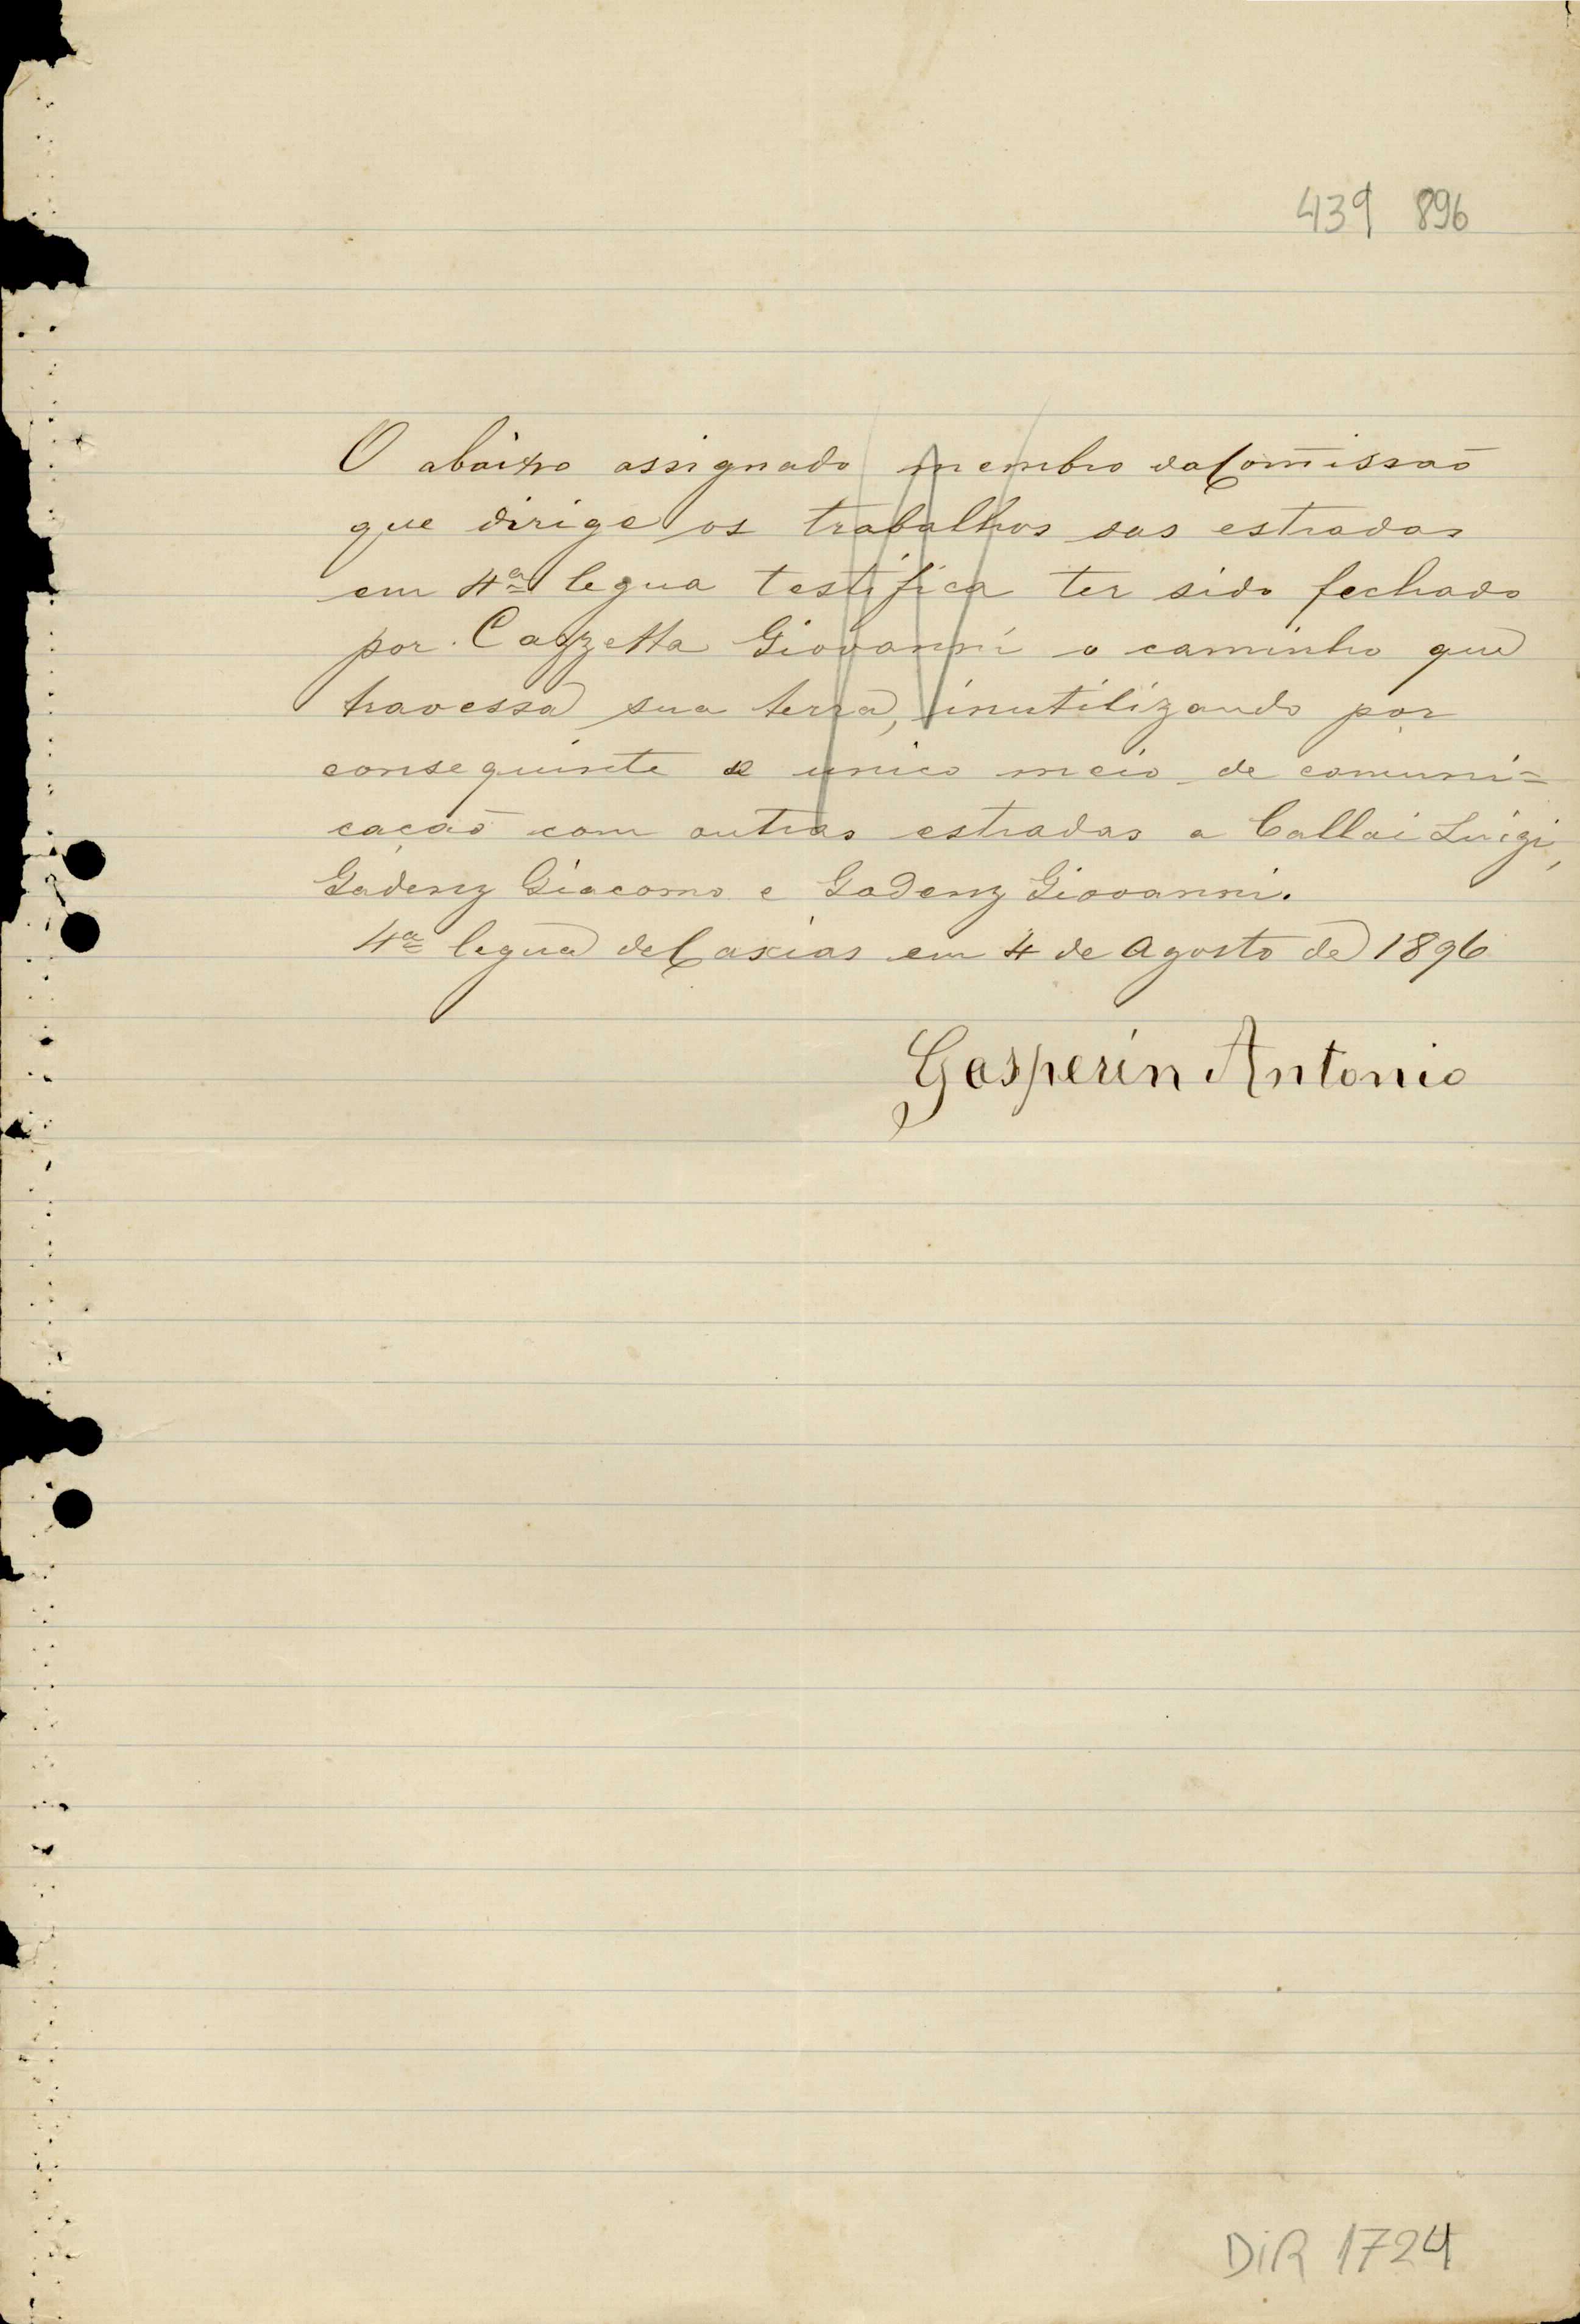 439 896
O abaixo assignado membro da Com̄issaõ
que dirige os trabalhos das estradas
em 4ª legua testifica ter sido fechado
por Cazzetta Giovanni o caminho que
travessa sua terra, inutilizando por
conseguinte o unico meio de comuni=
cação com outras estradas a Callai Luigi,
Gadenz Giacomo e Gadenz Giovanni.
4ª legua de Caxias em 4 de Agosto de 1896
Gasperin Antonio
DiR 1724